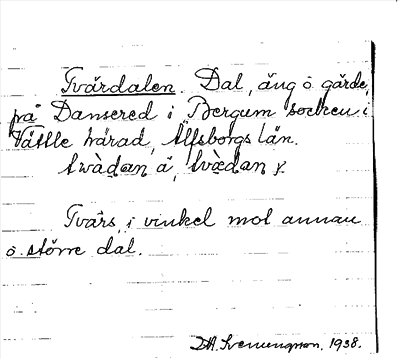 Tvärdalen. Dal, äng o gärde,
på Dansered i Bergum socken i
Vättle härad, Älfsborgs län.
twàdan ä, 
Tvärs, i vinkel mot annan
o. större dal.
1938.